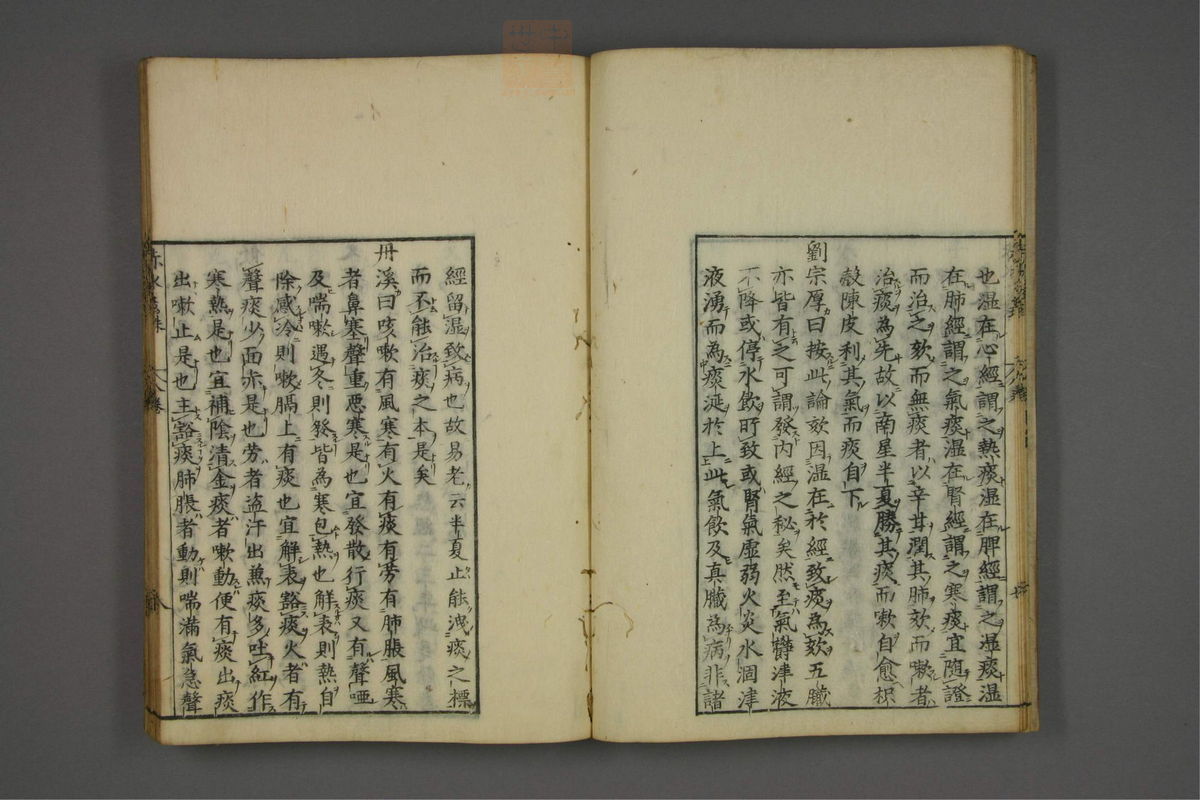 也湿在心經謂之熱痰湿在脾經謂之湿痰湿
在肺經謂之氣痰湿在腎經謂之寒痰宜随證
而治之欬而無痰者以辛甘潤其肺欬而嗽者
治痰為先故以南星半夏勝其痰而嗽自愈枳
殻陳皮利其氣而痰自下
劉宗厚曰按此論欬因湿在於經致痰為欬五臓
亦皆有之可謂發内經之秘矣然至氣欝津液
不降或停水飲所致或腎氣虚弱火炎水涸津
液湧而為痰涎於上此氣飲及真臓為病非諸
經留湿致病也故易老云半夏止能洩痰之標
而不能治痰之本是矣
丹溪曰咳嗽有風寒有火有痰有労有肺脹風寒
者鼻塞聲重悪寒是也宜發散行痰又有聲唖
及喘嗽遇冬則發皆為寒包熱也解表則熱自
除感冷則嗽膈上有痰也宜解表豁痰火者有
聲痰少面赤是也労者盗汗出兼痰多吐紅作
寒熱是也宜補陰清金痰者嗽動便有痰出痰
出嗽止是也主豁痰肺脹者動則喘滿氣急聲